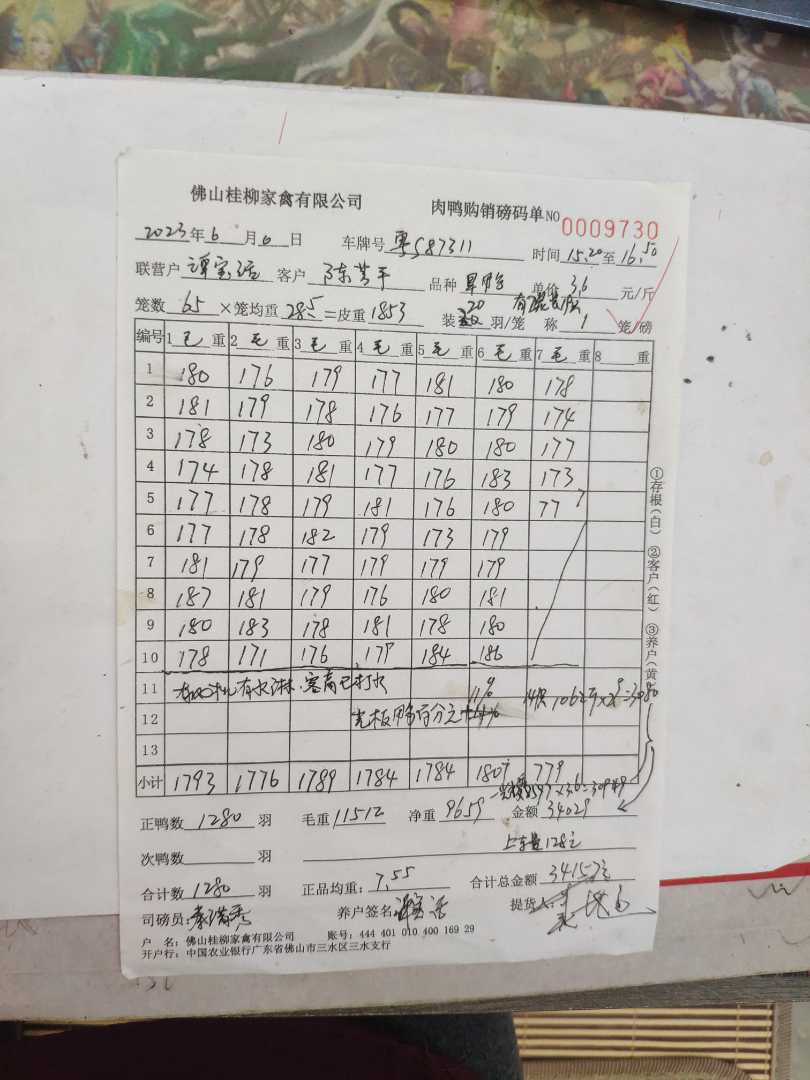 佛山桂柳家禽有限公司 肉鸭购销磅码单 NO 0009730
2023年6月6日 车牌号 粤S87311 时间 15.20至16.50
联营户 客户 陈 平 品种 单价 3.6 元/斤
笼数 65 ×笼均重 28.5 =皮重 1853 装 20 羽/笼 称 1 笼/磅
编号 1 毛 重 2 毛 重 3 毛 重 4 毛 重 5 毛 重 6 毛 重 7 毛 重 8 重
1 180 176 179 177 181 180 178
2 181 179 178 176 177 179 174
3 178 173 180 179 180 180 177
4 174 178 181 177 176 183 173
5 177 178 179 181 176 180 77
6 177 178 182 179 173 179
7 181 179 177 179 179 179
8 187 181 179 176 180 181
9 180 183 178 181 178 180
10 178 171 176 177 184 186
11 有水淋.客商已打水 11%
12 光板 百分之
13
小计 1793 1776 1789 1784 1784 1807 779
×3.6=30949
正鸭数 1280 羽 毛重 11512 净重 9659 金额 34029
次鸭数 羽 上车费128元
合计数 1280 羽 正品均重: 7.55 合计总金额 34157元
司磅员: 养户签名 提货人:
户 名: 佛山桂柳家禽有限公司 账号: 444 401 010 400 169 29
开户行: 中国农业银行广东省佛山市三水区三水支行
①存根(白) ②客户(红) ③养户(黄